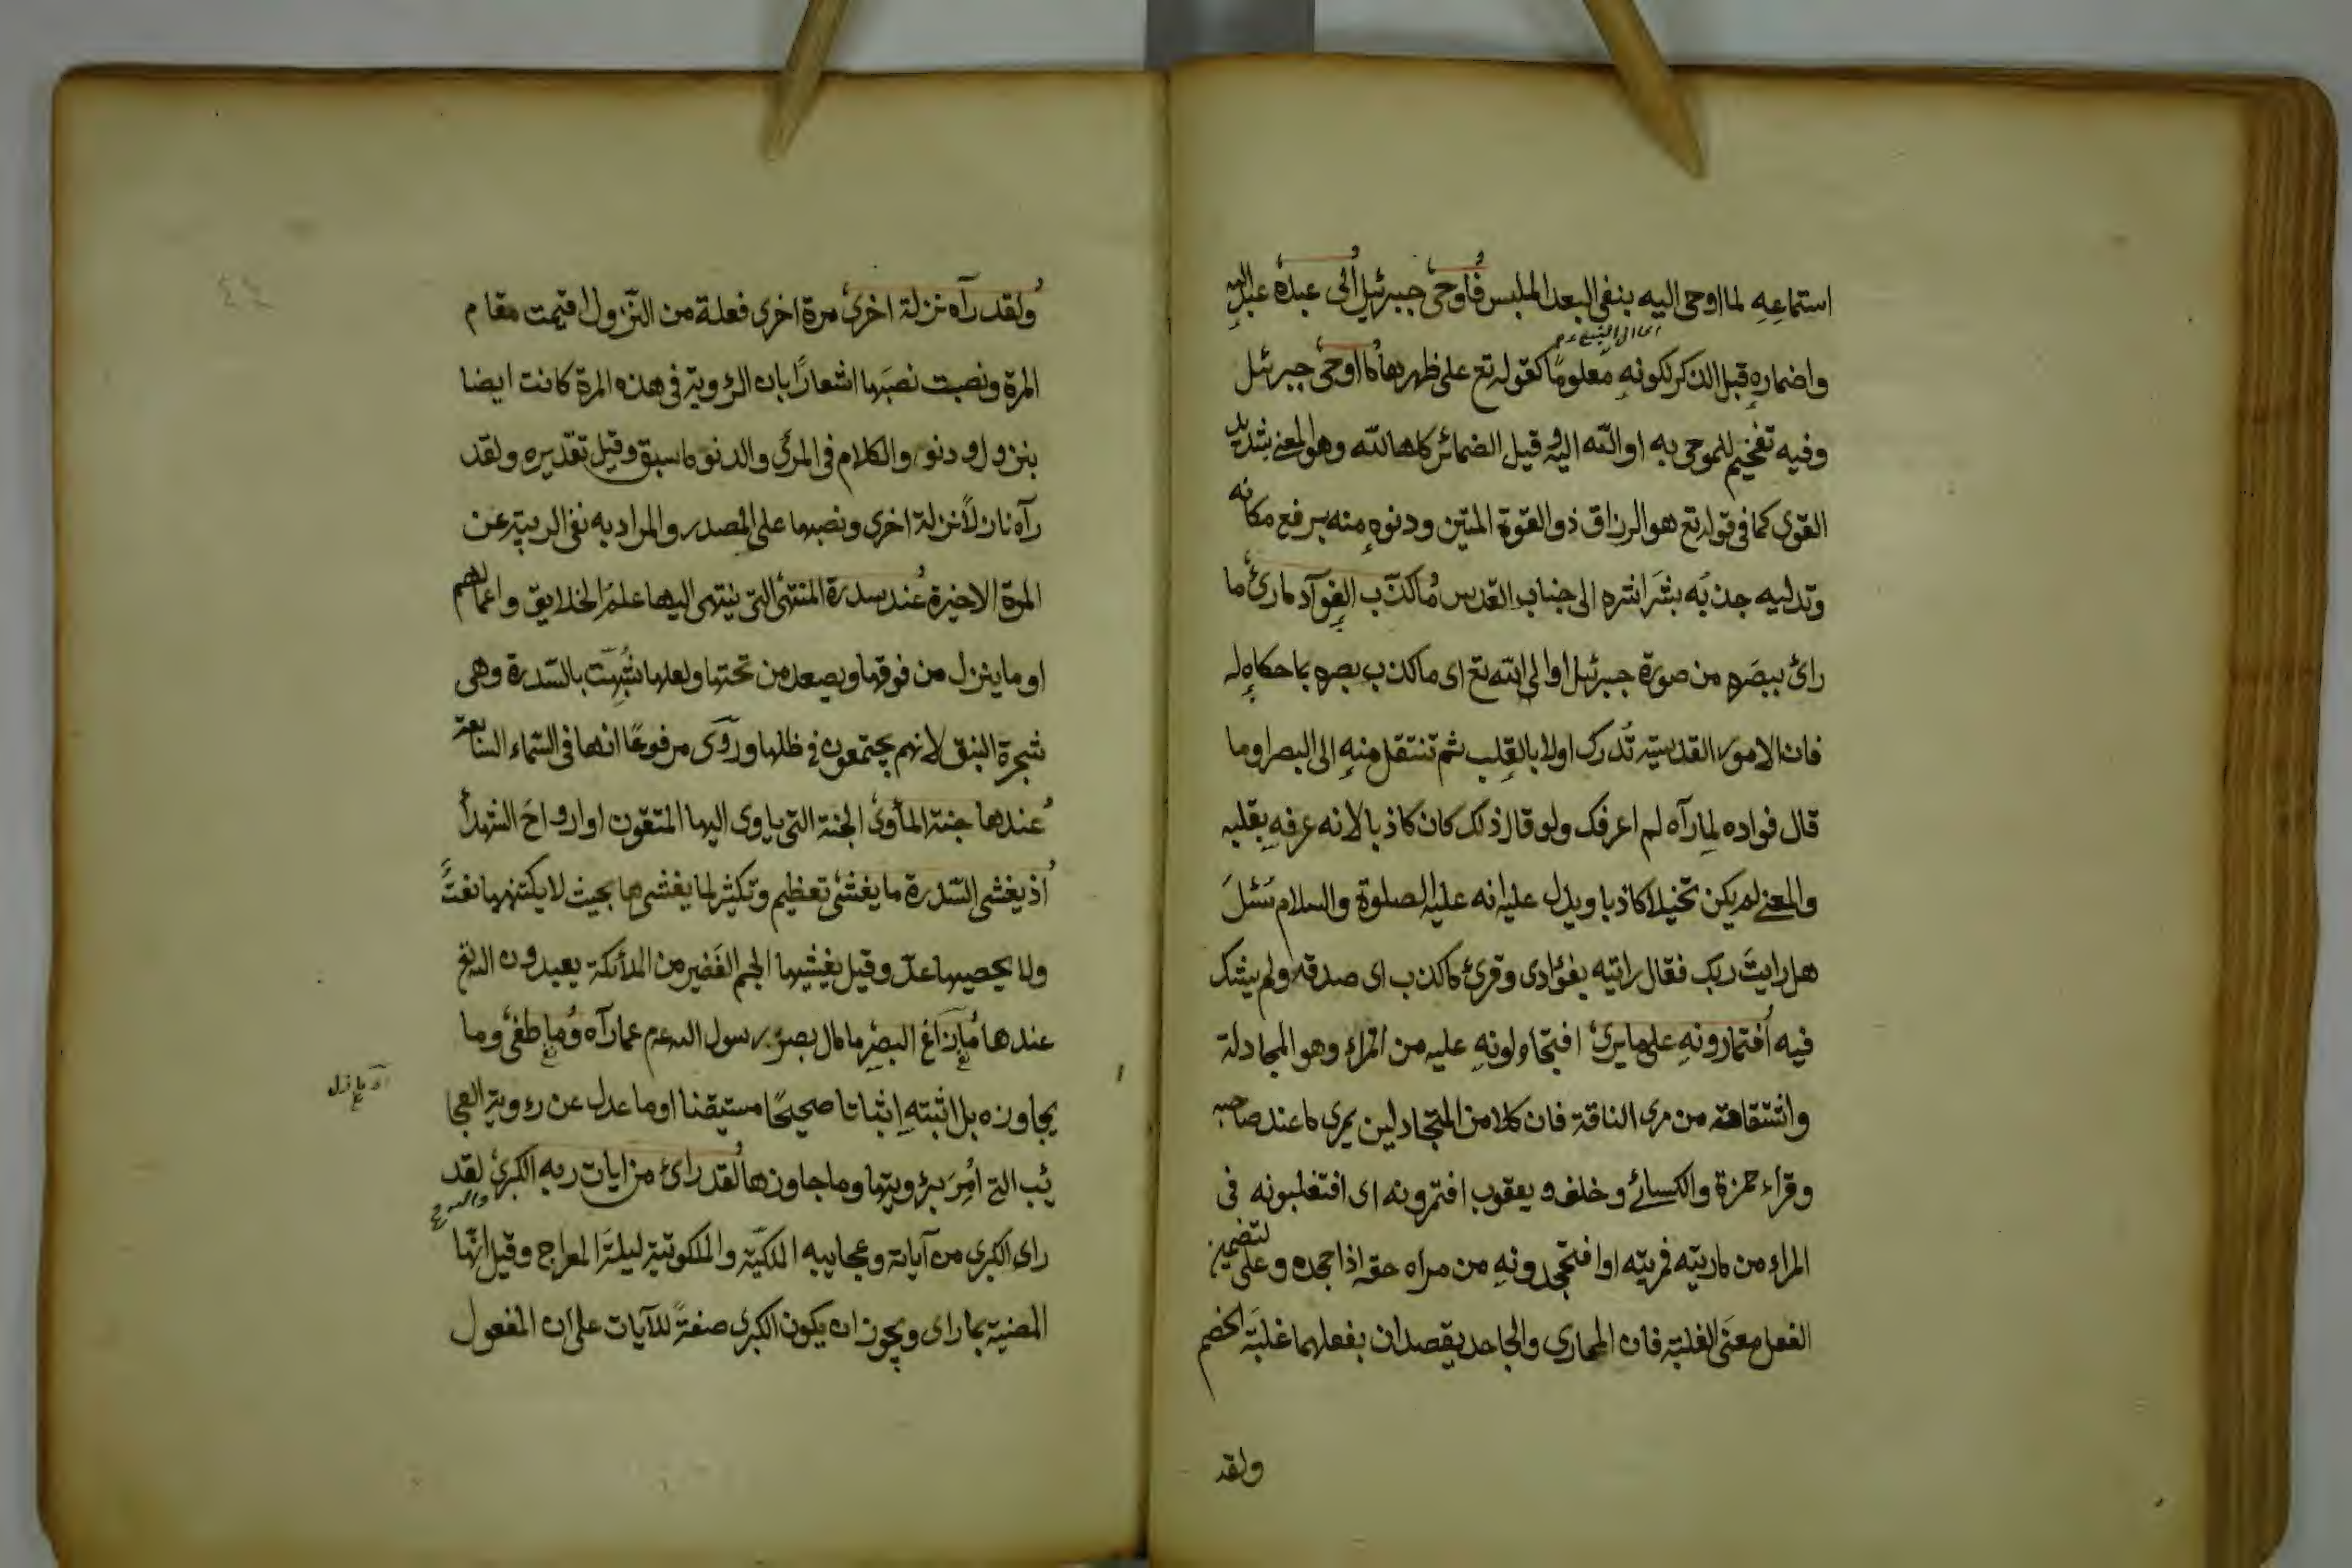 استماعه لما اوحى اليه بنفى البعد الملبس فاوحى جبرئيل الى عبده عبد الله
اى الى النبى عم
واضماره قبل الذكر لكونه معلوما كقوله تع على ظهرها ما اوحى جبرئيل
وفيه تفخيم للموحى به او الله اليه وقيل الضمائر كلها لله وهو المعنى بشديد
القوى كما فى قوله تع هو الرزاق ذو القوة المتين ودنوه منه برفع مكانه
وتدليه جذبه بشراشره الى جناب القدس ما كذب الفؤاد ما رى ما
راى ببصره من صورة جبرئيل او الى الله تع اى ما كذب بصره بما حكاه له
فان الامور القدسية تدرك اولا بالقلب ثم تنتقل منه الى البصر او ما
قال فواده لما رآه لم اعرفك ولو قال ذلك كان كاذبا لانه عرفه بقلبه
والمعنى لم يكن تخيلا كاذبا ويدل عليه انه عليه الصلوة والسلام سئل
هل رايت ربك فقال رايته بفؤادى وقرئ ما كذب اى صدقه ولم يشك
فيه افتمارونه على ما يرى افتجادلونه عليه من المراء وهو المجادلة
واشتقاقه من مرى الناقة فان كلا من المتجادلين يمرى ما عند صاحبه
وقراء حمزة والكسائى وخلف ويعقوب افتمرونه اى افتغلبونه فى
المراء من ماريته فمريته او افتجحدونه من مراه حقه اذا جحده وعلى لتضمين
الفعل معنى الغلبة فان الممارى والجاحد يقصدان بفعلهما غلبة الخصم
ولقد
ولقد رآه نزلة اخرى مرة اخرى فعلة من النزول اقيمت مقام
المرة ونصبت نصبها اشعارا بان الرؤية فى هذه المرة كانت ايضا
بنزول ودنو والكلام فى المرئى والدنو ما سبق وقيل تقديره ولقد
رآه نازلا نزلة اخرى ونصبها على المصدر والمراد به نفى الريبة عن
المرة الاخيرة عند سدرة المنتهى التى ينتهى اليها علم الخلايق واعمالهم
او ما ينزل من فوقها ويصعد من تحتها ولعلها شبهت بالسدرة وهى
شجرة النبق لانهم يجتمعون فى ظلها وروى مرفوعا انها فى السماء السابعة
عندها جنة المأوى الجنة التى ياوى اليها المتقون او ارواح الشهدأ
اذ يغشى السدرة ما يغشى تعظيم وتكثير لما يغشيها بحيث لا يكتنهها نعت
ولا يحصيها عد وقيل يغشيها الجم الغفير من الملائكة يعبدون الله تع
عندها ما زاغ البصر ما مال بصر رسول الله عم عما رآه وما طغى وما
يجاوزه بل اثبته اثباتا صحيحا مستيقنا او ما عدل عن رؤية العجا
ئب التى امر برؤيتها وما جاوزها لقد راى من ايات ربه الكبرى لقد
راى الكبرى من آياته وعجايبه الملكية والملكوتية ليلة المعراج وقيل انها
المعنية بما راى ويجوز ان يكون الكبرى صفة للآيات على ان المفعول